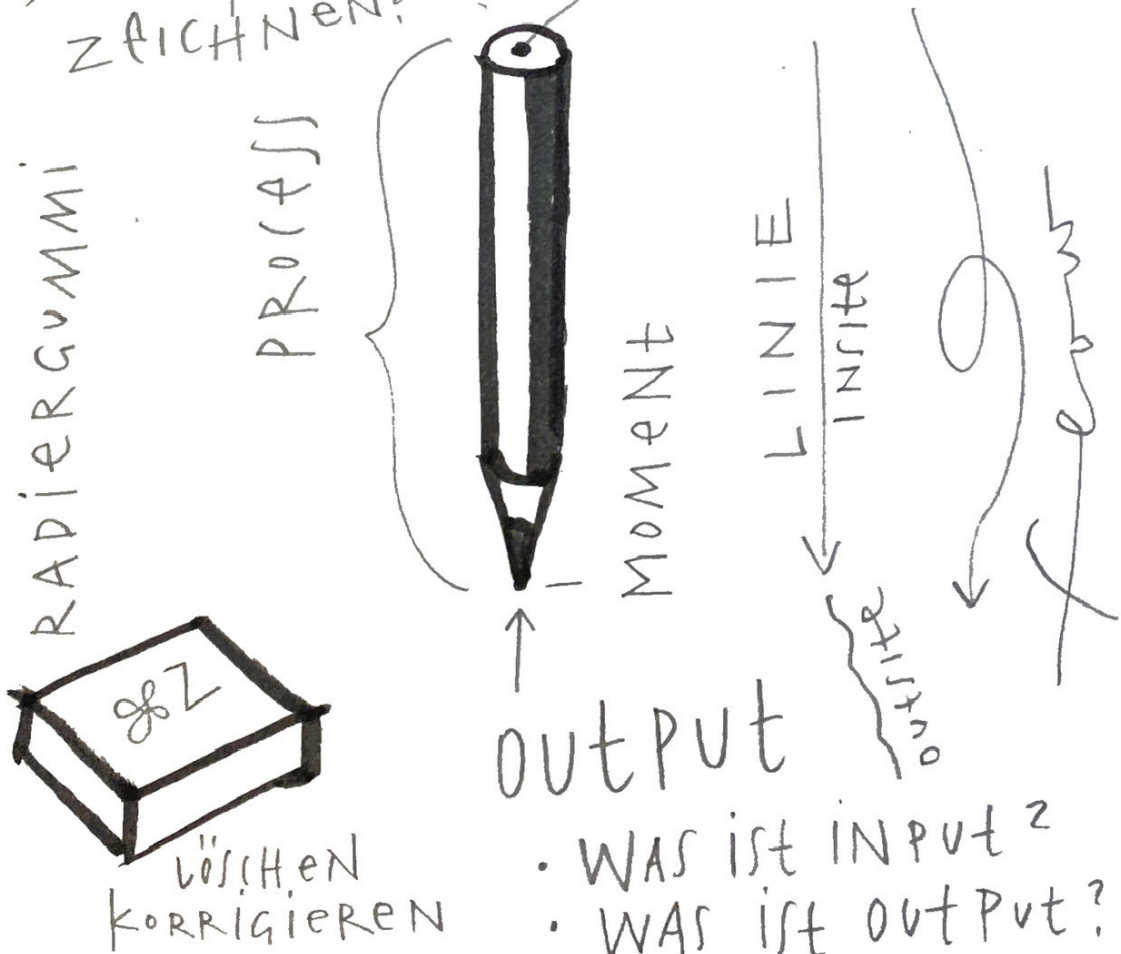 ZEICHNEN!
RADIERGUMMI
PROCESS
MOMENT
LINIE
INSITE
OUTSITE
⌘Z
LÖSCHEN
KORRIGIEREN
OUTPUT
· WAS IST INPUT?
· WAS IST OUTPUT?